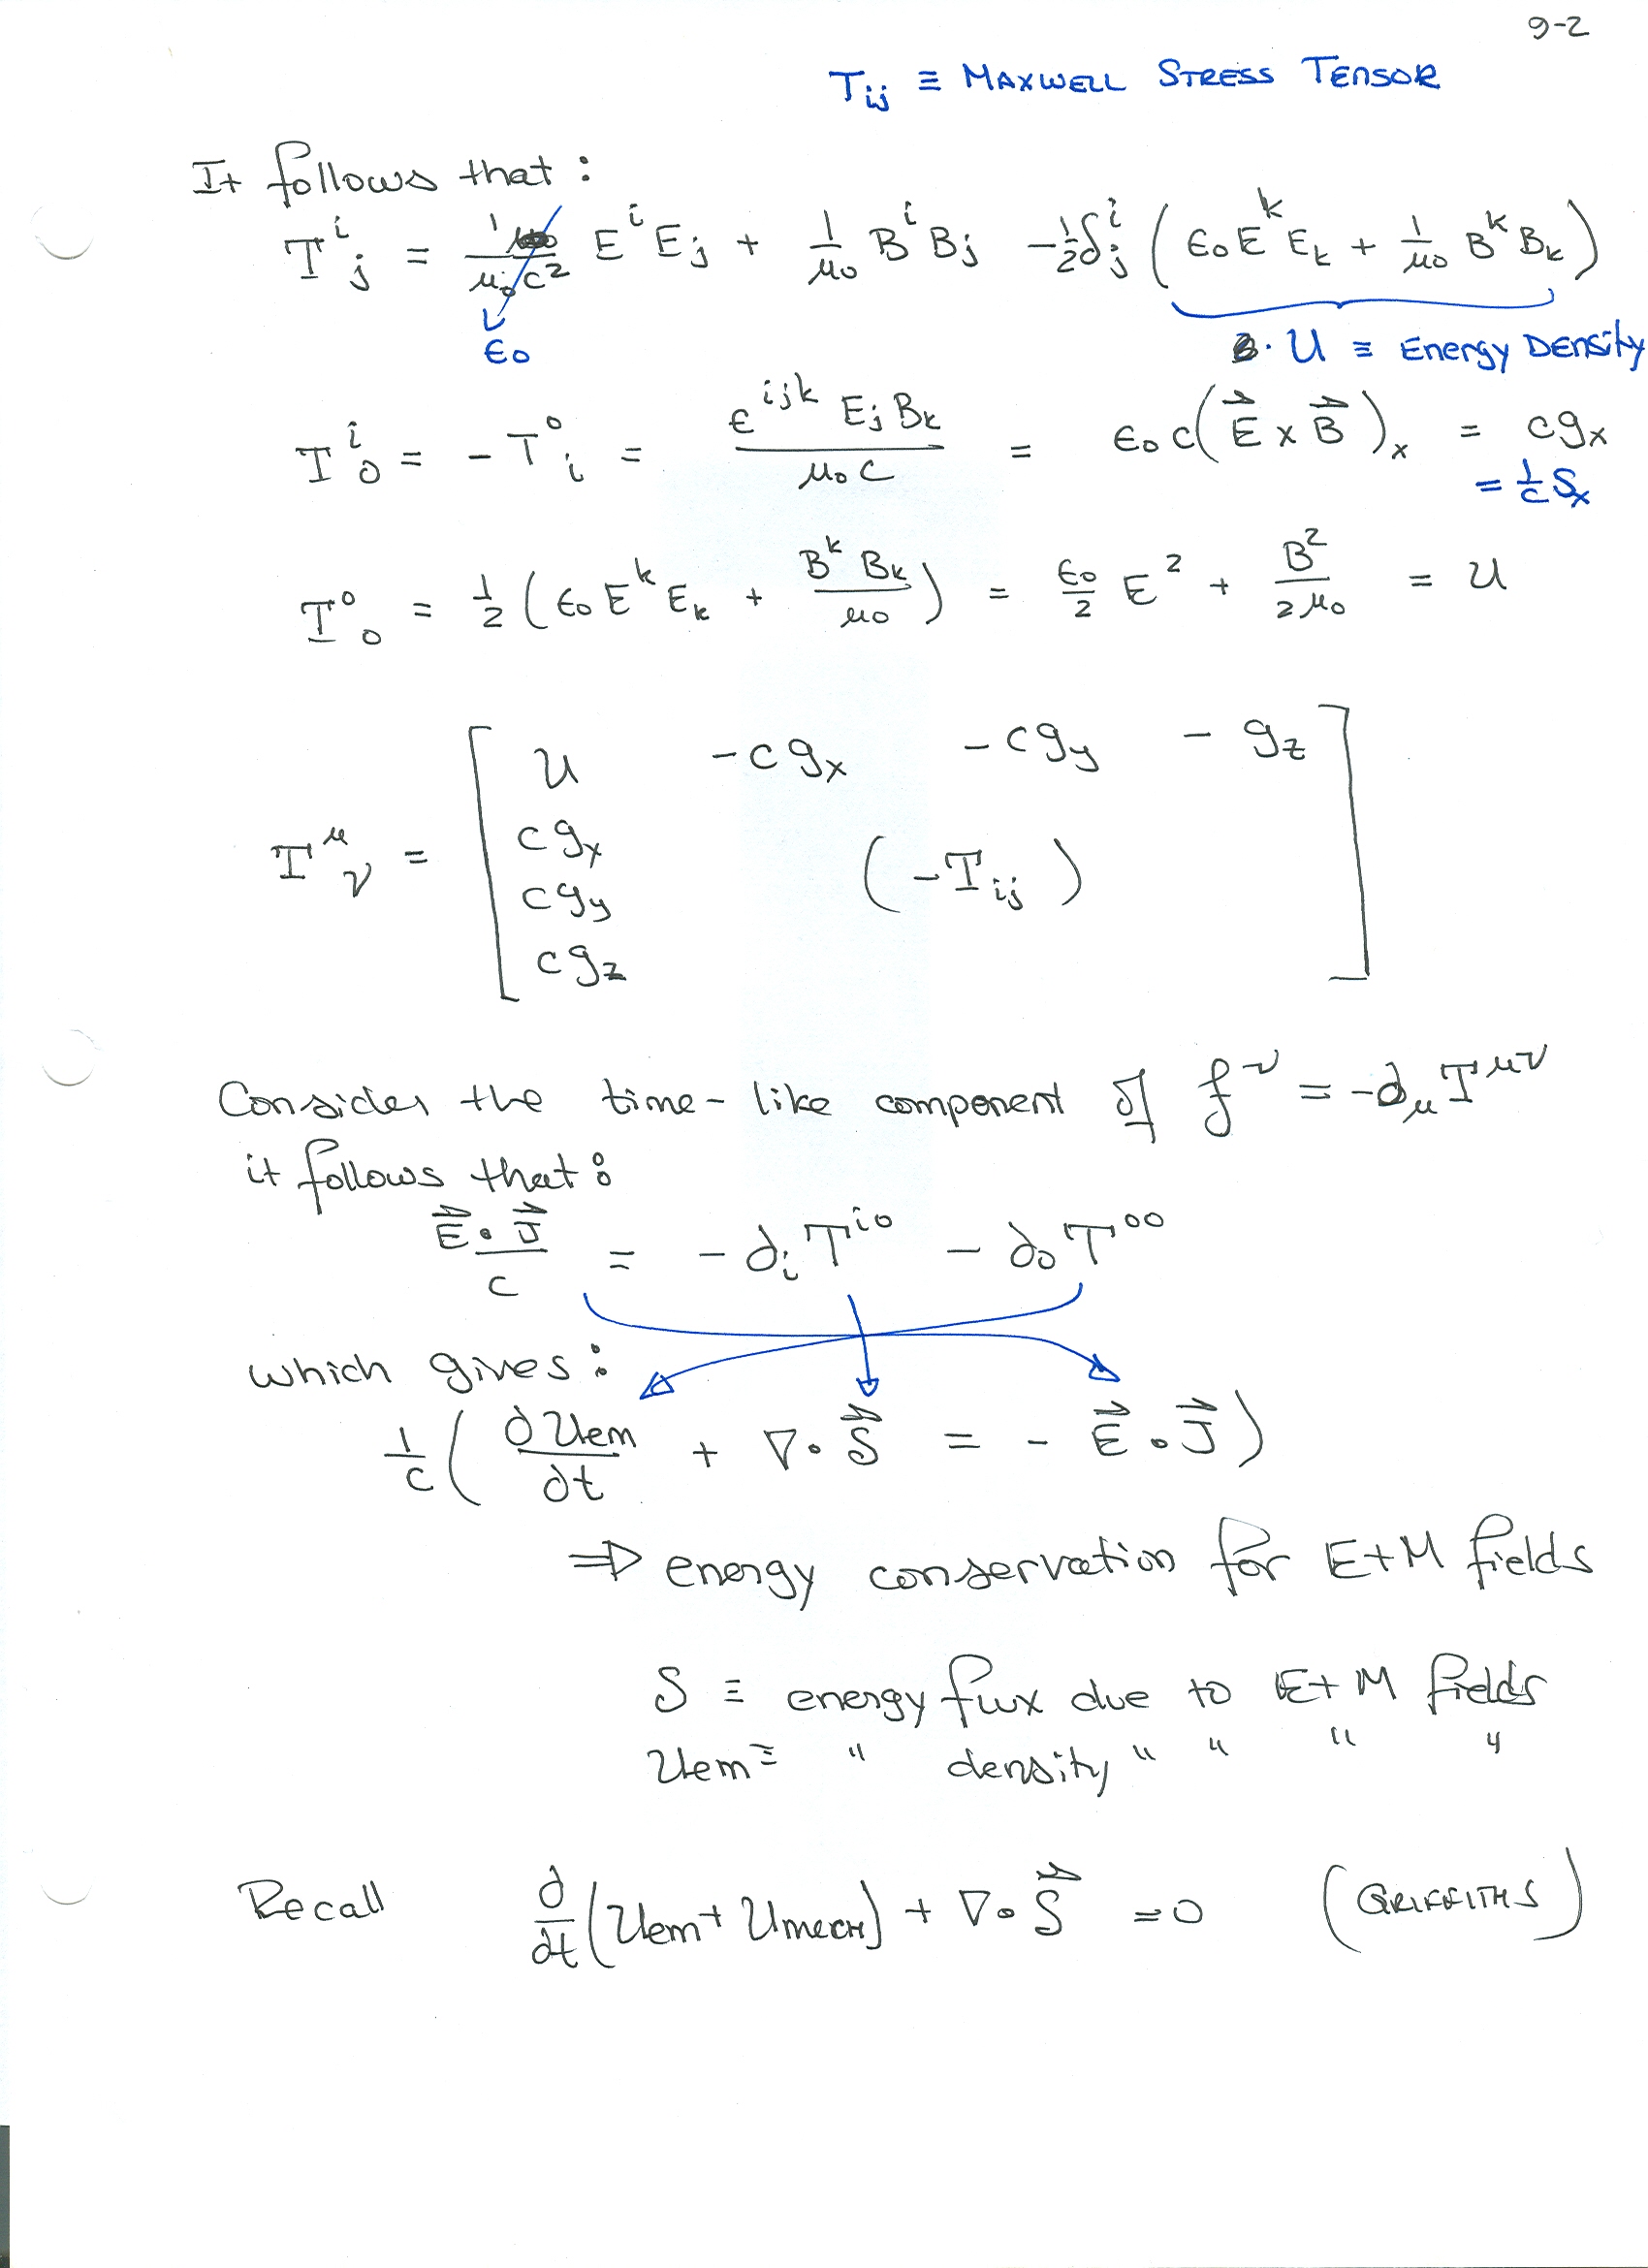 9-2
T_ij ≡ MAXWELL STRESS TENSOR
It follows that:
T^i_j = 1/(μ₀c²) E^i E_j + 1/μ₀ B^i B_j - ½ δ^i_j (ϵ₀ E^k E_k + 1/μ₀ B^k B_k)
ϵ₀
· U ≡ Energy DENSity
T^i_0 = - T^0_i = ϵ^ijk E_j B_k / μ₀ c = ϵ₀ c (E⃗ × B⃗)_x = c g_x
= 1/c S_x
T^0_0 = ½ (ϵ₀ E^k E_k + B^k B_k / μ₀) = ϵ₀/2 E² + B²/2μ₀ = U
T^μ_ν = [ U -c g_x -c g_y - g_z
c g_x
c g_y (-T_ij)
c g_z ]
Consider the time-like component of f^ν = -∂_μ T^μν
it follows that:
E⃗ · J⃗ / c = - ∂_i T^i0 - ∂_0 T^00
which gives:
1/c ( ∂U_em/∂t + ∇·S⃗ = - E⃗ · J⃗ )
⇒ energy conservation for E+M fields
S ≡ energy flux due to E+M fields
U_em ≡ " density " " " "
Recall ∂/∂t (U_em + U_MECH) + ∇·S⃗ = 0 (GRIFFITHS)